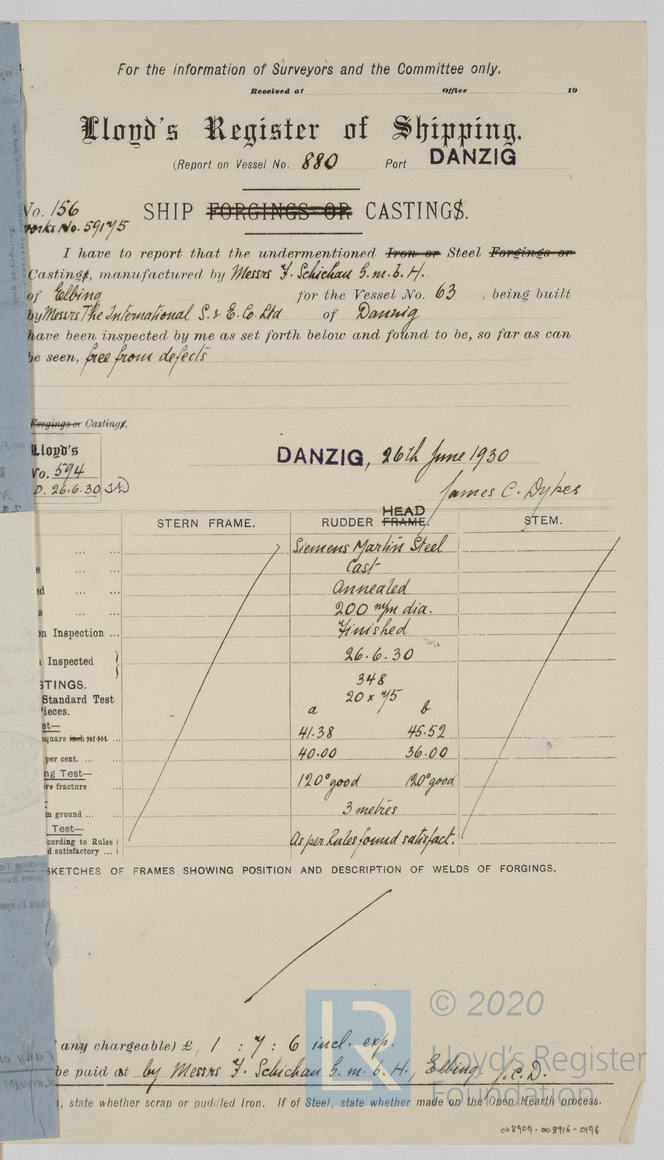 For the information of Surveyors and the Committee only.
Received at Office 19
Lloyd's Register of Shipping.
(Report on Vessel No. 880 Port DANZIG
No. 156
works No. 59175
SHIP FORGINGS OR CASTINGS.
I have to report that the undermentioned Iron or Steel Forgings or
Castings, manufactured by Messrs F. Schichau G.m.b.H.
of Elbing for the Vessel No. 63, being built
by Messrs The International S. & E. Co. Ltd of Danzig
have been inspected by me as set forth below and found to be, so far as can
be seen, free from defects
Forgings or Castings.
Lloyd's
No. 594
D. 26.6.30 JD
DANZIG, 26th June 1930
James C. Dykes
STERN FRAME. RUDDER FRAME. HEAD STEM.
Siemens Martin Steel
Cast
Annealed
200 m/m dia.
n Inspection ... Finished
Inspected 26.6.30
STINGS. 348
Standard Test 20 x 75
ieces. a b
st—
square inch mm ... 41.38 45.52
per cent. ... 40.00 36.00
ng Test—
re fracture 120° good 120° good
m ground ... 3 metres
Test—
cording to Rules
d satisfactory ... As per Rules found satisfact.
SKETCHES OF FRAMES SHOWING POSITION AND DESCRIPTION OF WELDS OF FORGINGS.
any chargeable) £ 1 : 7 : 6 incl. exp.
be paid at by Messrs F. Schichau G.m.b.H., Elbing. J.C.D.
, state whether scrap or puddled Iron. If of Steel, state whether made on the Open Hearth process.
© 2020
LR
Lloyd's Register
Foundation
008909-008916-0196